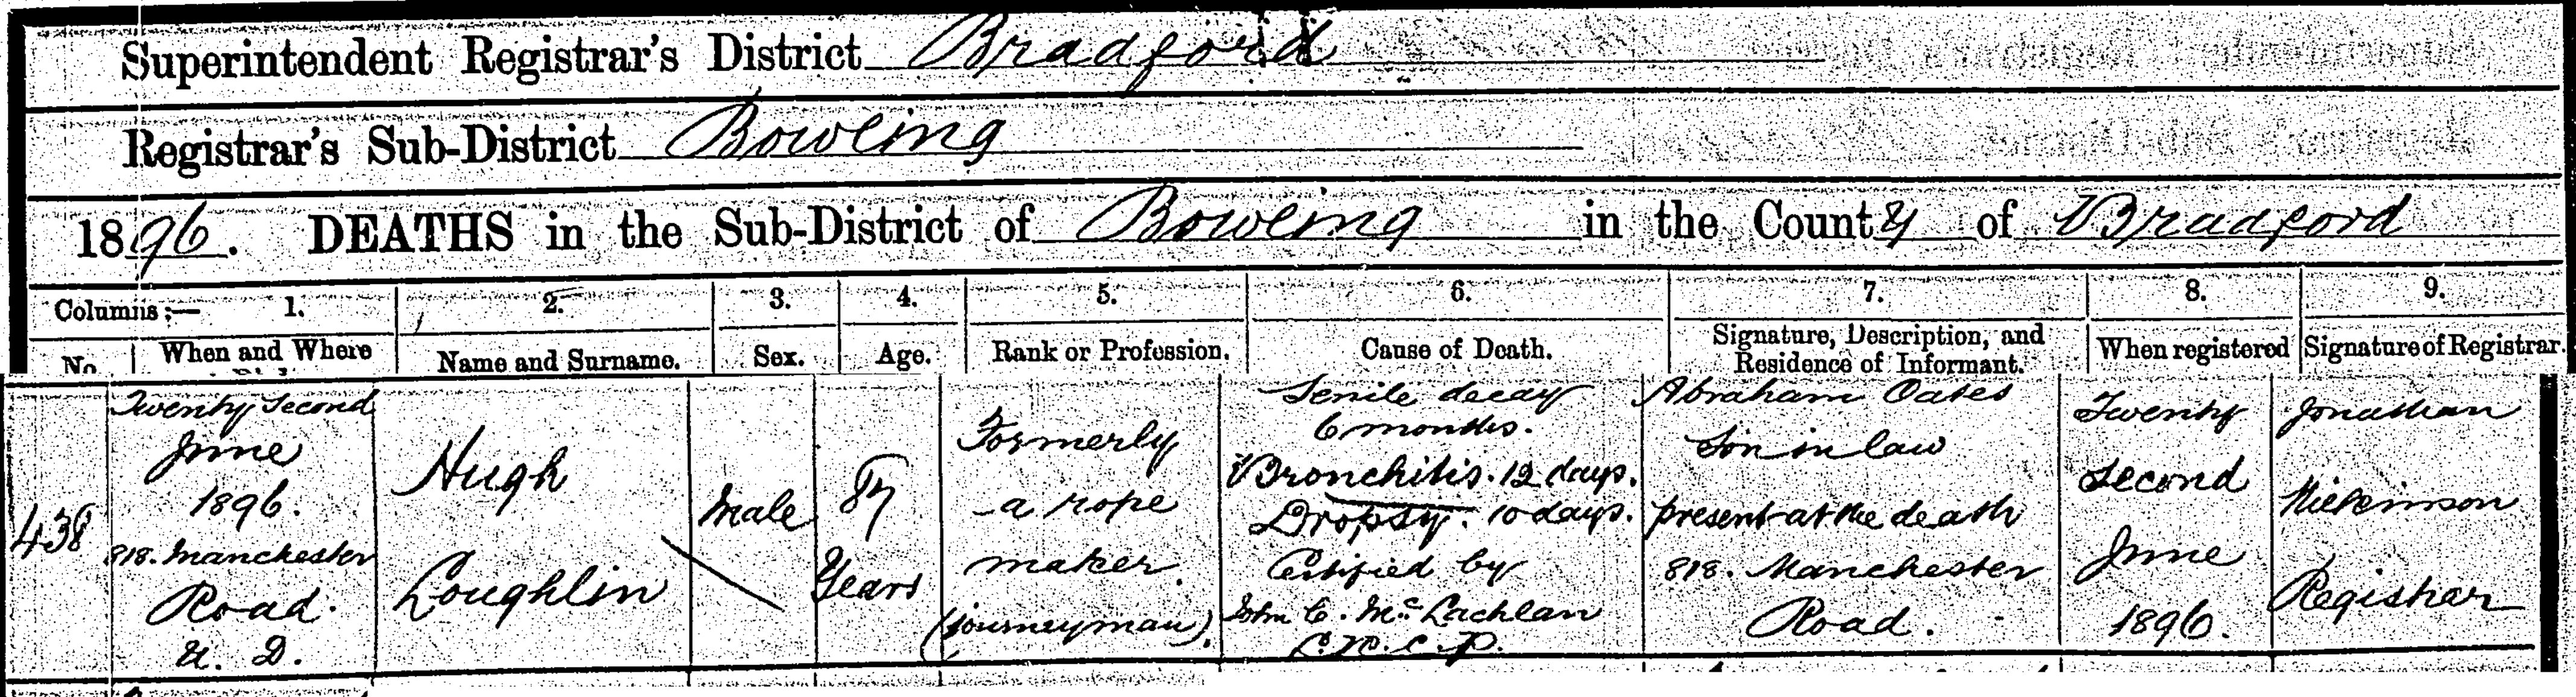 Superintendent Registrar's District Bradford
Registrar's Sub-District Bowling
1896. DEATHS in the Sub-District of Bowling in the County of Bradford
Columns:— 1. 2. 3. 4. 5. 6. 7. 8. 9.
No. When and Where Name and Surname. Sex. Age. Rank or Profession. Cause of Death. Signature, Description, and Residence of Informant. When registered Signature of Registrar.
438
Twenty Second
June
1896.
818. Manchester
Road.
U. D.
Hugh
Loughlin
Male
87
Years
Formerly
a rope
maker.
(journeyman).
Senile decay
6 months.
Bronchitis. 12 days.
Dropsy. 10 days.
Certified by
John C. Mc Lachlan
Abraham Oates
Son in law
present at the death
818. Manchester
Road.
Twenty
Second
June
1896.
Jonathan
Registrar